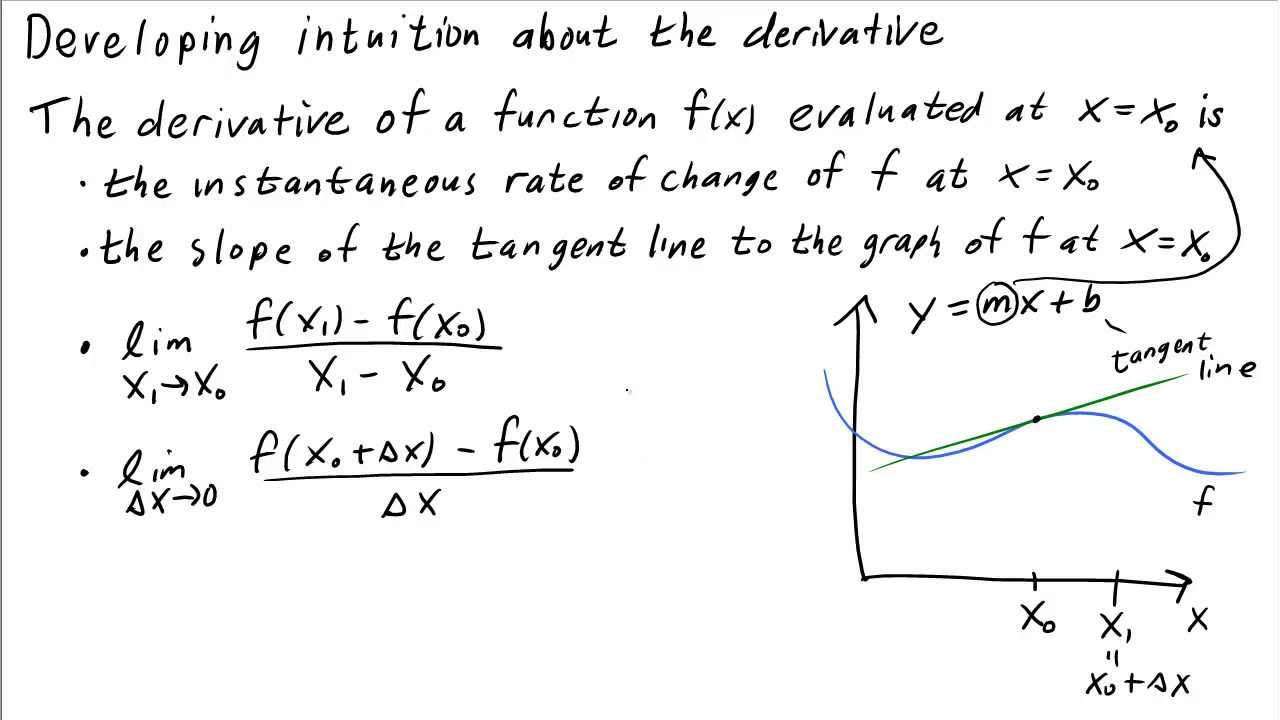 Developing intuition about the derivative
The derivative of a function f(x) evaluated at x = x₀ is
· the instantaneous rate of change of f at x = x₀
· the slope of the tangent line to the graph of f at x = x₀
· lim x₁→x₀ (f(x₁) - f(x₀)) / (x₁ - x₀)
· lim Δx→0 (f(x₀ + Δx) - f(x₀)) / Δx
y = mx + b
tangent
line
f
x₀
x₁
x
=
x₀ + Δx